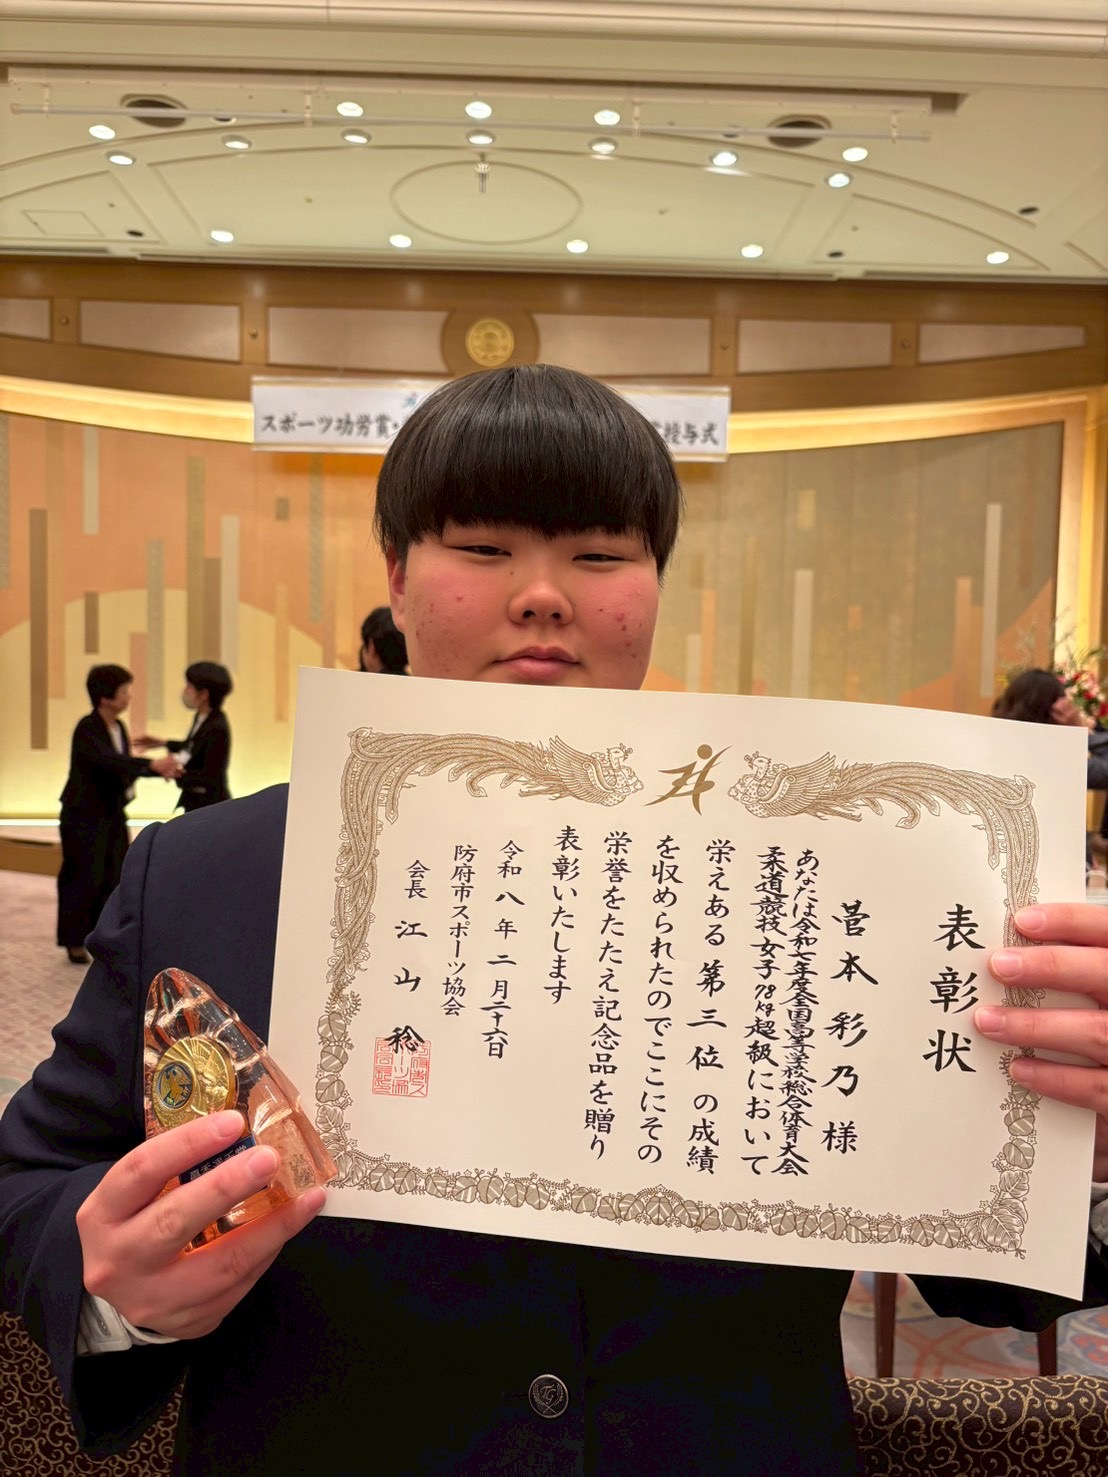 スポーツ功労賞・
賞授与式
表彰状
菅本彩乃様
あなたは令和七年度全国高等学校総合体育大会
柔道競技女子78kg超級において
栄えある第三位の成績
を収められたのでここにその
栄誉をたたえ記念品を贈り
表彰いたします
令和八年二月二十六日
防府市スポーツ協会
会長 江山稔
TG